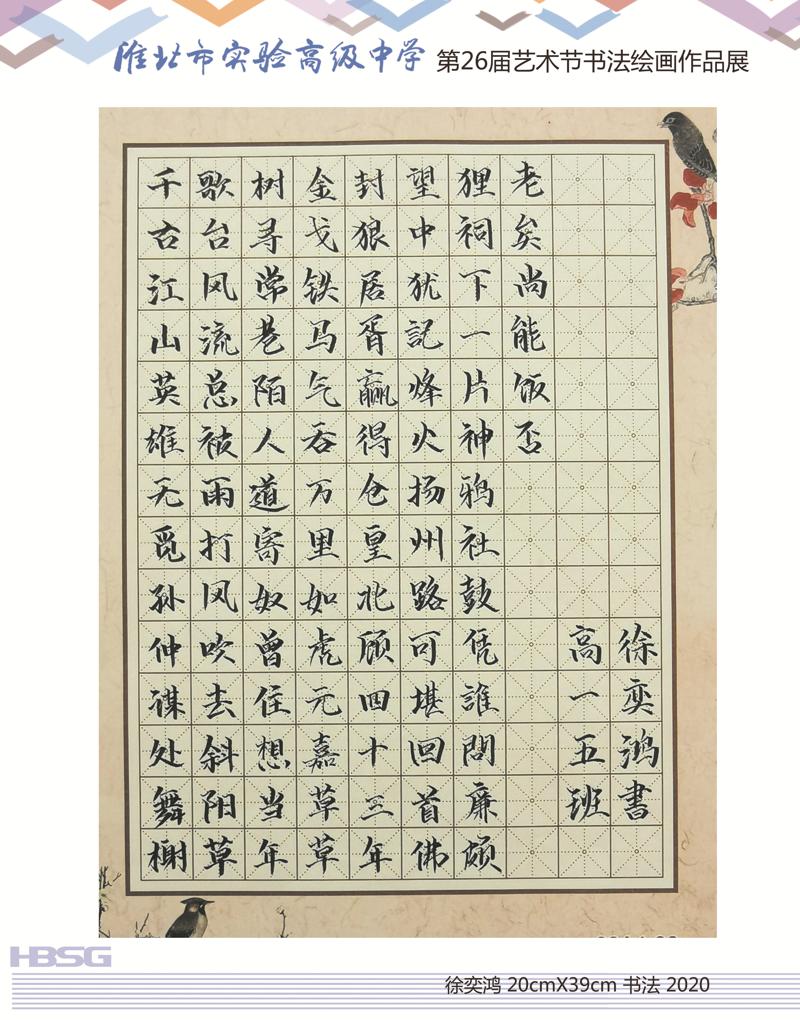 淮北市实验高级中学 第26届艺术节书法绘画作品展
千古江山英雄无觅孙仲谋处舞榭
歌台风流总被雨打风吹去斜阳草
树寻常巷陌人道寄奴曾住想当年
金戈铁马气吞万里如虎元嘉草草
封狼居胥赢得仓皇北顾四十三年
望中犹記烽火扬州路可堪回首佛
狸祠下一片神鸦社鼓凭誰問廉颇
老矣尚能饭否
高一五班
徐奕鸿書
HBSG
徐奕鸿 20cmX39cm 书法 2020